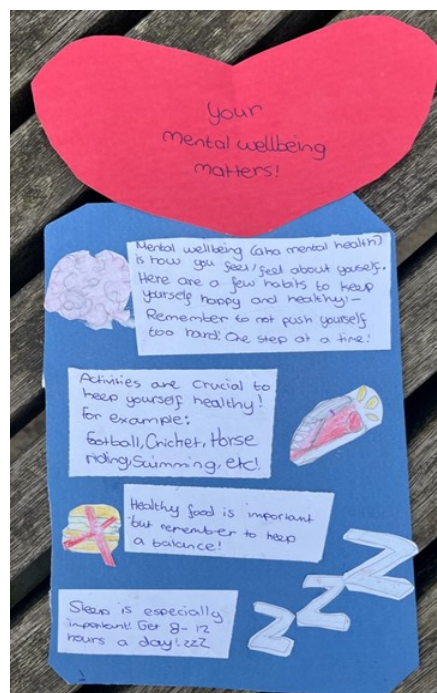 Your
mental wellbeing
matters!
Mental wellbeing (aka mental health)
is how you feel/feel about youself.
Here are a few habits to keep
yourself happy and healthy:-
Remember to not push yourself
too hard! One step at a time!
Activities are crucial to
keep yourself healthy!
For example:
Football, Cricket, Horse
riding, Swimming, etc!
Healthy food is important
but remember to keep
a balance!
Sleep is especially
important! Get 8-12
hours a day! zzZ
Z
Z
Z